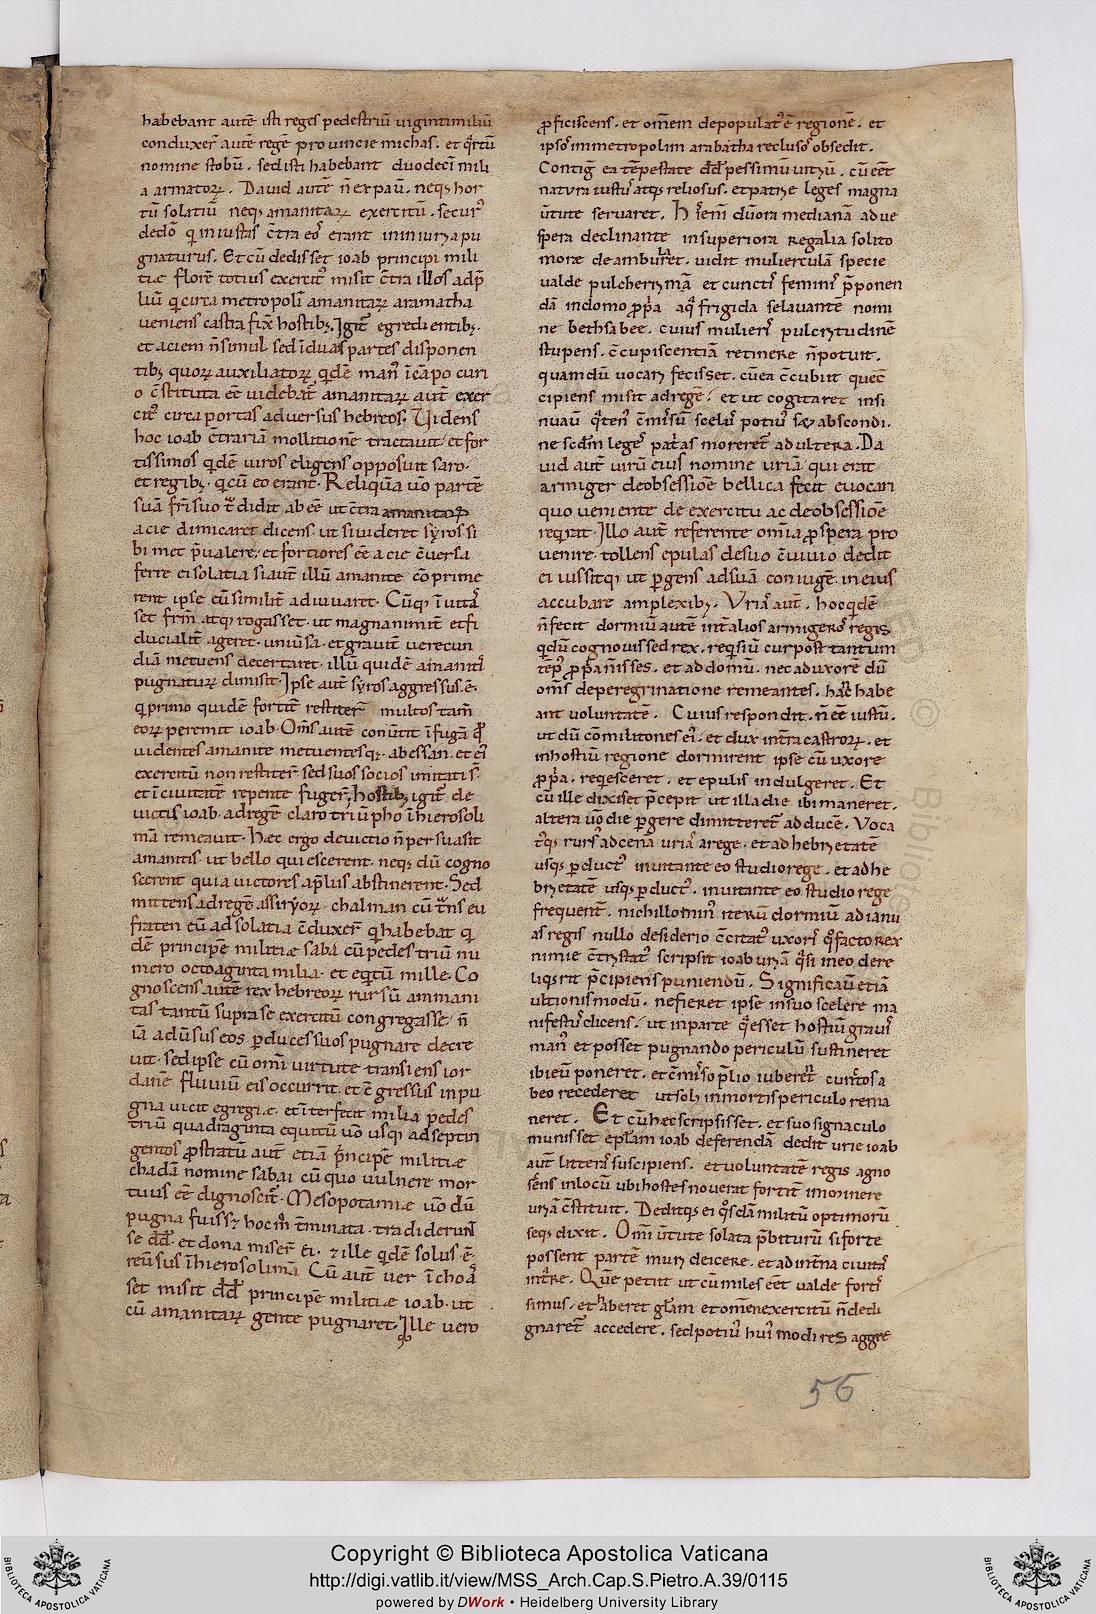 habebant autē isti reges pedestriū uigintimiliū
conduxer̄ autē regē prouincie michas. et q̄rtū
nomine stobū. sed isti habebant duodecī mili
a armatoꝝ. Dauid autē n̄ expaū. neqꝫ hor
tū solatiū neqꝫ amanitaꝝ exercitū. securꝰ
dedō qi iniustas c̄tra eoꝰ erant in iniuria pu
gnaturus. Et cū dedisset ioab principi mili
tiæ florē totius exercitꝰ misit c̄tra illos ad p̄
liū qi circa metropolī amanitaꝝ aramatha
ueniens castra fixꝰ hostibꝫ. Igit̄ egredientibꝫ.
et aciem n̄ simul sed ī duas partes disponen
tibꝫ quoꝝ auxiliatoꝝ qidē manꝰ ī cāpo curi
o c̄stituta eē uidebat̄ amanitaꝝ aut̄ exer
citꝰ circa portas aduersus hebreos. Uidens
hoc ioab c̄trariā mollitionē tractauit. et for
tissimos qidē uiros eligens opposuit saro.
et regibꝫ. qi cū eo erant. Reliquā uō partē
suā fr̄i suo t̄didit ab eē ut c̄tra amanitaꝝ
acie dimicaret dicens. ut si uideret syros si
bimet p̄ualere. et fortiores eē acie c̄uersa
ferre ei solatia si aut̄ illū amanite cōprime
rent ipse eū similit̄ adiuuaret. Cūqꝫ ī uitā
set fr̄m atqꝫ rogasset. ut magnanimit̄ et fi
ducialit̄ ageret. uniūsa. et grauit̄ uerecun
diā metuens decertaret. illū quidē amaniti
pugnatuꝝ dimisit. Ipse aut̄ syros aggressus. ē.
qi primo quidē fortit̄ restiter̄ multos tam̄
eoꝝ peremit ioab. Om̄s autē cōuertit ī fugā qd̄
uidentes amanite metuentesqꝫ. abessan. et eiꝰ
exercitū non restiter̄ sed suos socios imitati s̄.
et ī ciuitatē repente fuger̄. hostibꝫ igit̄ de
uictis ioab. ad regē claro triūpho ī hierosoli
mā remeauit. Hæc ergo deuictio n̄ persuasit
amanitis. ut bello quiescerent. neqꝫ dū cogno
scerent quia uictores ap̄lius abstinerent. Sed
mittens ad regē assiryoꝝ. chalman cū t̄ns eu
fraten eū ad solatia c̄duxer̄ qi habebat qi
dē principē militiæ saba cū pedestriū nu
mero octoaginta milia. et eqitū mille. Co
gnoscens autē rex hebreoꝝ rursū ammani
tas tantū supra se exercitū congregasse. n̄
iā adūsus eos p̄ duces suos pugnare decre
uit. sed ipse cū omī uirtute transiens ior
danē fluuiū eis occurrit. et c̄gressus in pu
gna uicit egregiæ. et īterfecit milia pedes
triū quadraginta equitū uō usqꝫ ad septin
gentos ꝓstratū aut̄ etiā p̄ncipē militiæ
chadā nomine sabai cū quo uulnere mor
tuus eē dignoscit̄. Mesopotamiæ uō dū
pugna fuissꝫ hocm̄ t̄minata. tradiderun̄t
se dd̄. et dona miser̄ ei. ⁊ ille qidē solus ē.
reūsus ī hierosolimā. Cū aut̄ uer ī choā
set misit dd̄ principē militiæ ioab. ut
cū amanitaꝝ gente pugnaret. Ille uero
ꝓficiscens. et om̄em depopulatꝰ ē regionē. et
ipsoꝰ in metropolim arabatha reclusoꝰ obsedit.
Contiḡ ea tēpestate dd̄ pessimū uitiū. cū eēt
natura iustꝰ atqꝫ reliosus. et patriæ leges magna
ūtute seruaret. Hꝰ enī dū ora medianā ad ue
spera declinante in superiora regalia solito
moræ deambularet. uidit mulierculā specie
ualde pulcherimā et cunctiꝰ feminiꝰ p̄ponen
dā in domo ꝓp̄a aq̄ frigida se lauantē nomi
ne bethsabee. cuius mulieriꝰ pulcritudinē
stupens. c̄cupiscentiā retinere n̄ potuit.
quam dū uocari fecisset. cū ea c̄cubuit quę c̄
cipiens misit ad regē. et ut cogitaret insi
nuaū q̄tenꝰ c̄mīsū sceluꝰ potiuꝰ abscondi.
ne scd̄m legeꝰ pat̄as moreret̄ adultera. Da
uid aut̄ uirū eius nomine uriā qui erat
armiger de obsessiōe bellica fecit euocari
quo ueniente de exercitu ac de obsessiōe
reqirit. Illo aut̄ referente om̄ia ꝓspera pro
uenire. tollens epulas de suo c̄uiuio dedit
ei iussitqꝫ ut p̄gens ad suā coniugē. in eius
accubare amplexibꝫ. Uriaꝰ aut̄. hoc qidē
n̄ fecit dormiū autē int̄ alios armigeroꝰ regis
qd̄ dū cognouissed rex. reqisiū cur post tantum
tēpꝰ ꝓp̄a n̄ isses. et ad domū. nec ad uxorē dū
om̄s de peregrinatione remeantes. hāc habe
ant uoluntatē. Cuius respondit. n̄ eē iustū.
ut dū cōmilitones eiꝰ. et dux intra castroꝝ. et
in hostiū regione dormirent ipse cū uxore
ꝓp̄a. reqiesceret. et epulis indulgeret. Et
cū ille dixiset p̄cepit ut illa die ibi maneret.
altera uō die p̄gere dimitteret̄ ad ducē. Uoca
tꝰqꝫ rursꝰ ad cenā uriaꝰ a rege. et ad hebrietatē
usqꝫ p̄ductꝰ inuitante eo studio rege. et ad he
brietatē usqꝫ p̄ductꝰ. inuitante eo studio rege
frequent̄. nichillominꝰ iterū dormiū ad ianu
as regis nullo desiderio c̄citatꝰ uxoriꝰ qō facto rex
nimie c̄tristatꝰ scripsit ioab uriā q̄si in eo dere
liqꝫrit p̄cipiens puniendū. Significaū etiā
ultionis modū. ne fieret ipse in suo scelere ma
nifestuꝰ dicens. ut in parte q̄ esset hostiū grauiꝰ
manꝰ et posset pugnando periculū sustineret
ibi eū poneret. et c̄mīso p̄lio iuberet̄ cunctos a
beo recederet ut solꝰ in mortis periculo rema
neret. Et cū hec scripsisset. et suo signaculo
munisset epl̄am ioab deferendā dedit urie ioab
aut̄ litteraꝰ suscipiens. et uoluntatē regis agno
scens in locū ubi hostes nouerat fortit̄ imminere
uriā c̄stituit. Deditqꝫ ei qōsdā militū optimorū
seqꝫ dixit. Omī ūtute solata p̄biturū si forte
possent partē muri deicere. et ad int̄na ciuitaꝰ
int̄re. Quē petiit ut cū miles eēt ualde fortiꝰ
simus. et haberet gl̄am et omēn exercitū n̄ dedi
gnaret̄ accedere. sed potiuꝰ huiꝰmodi res aggre
56
Copyright © Biblioteca Apostolica Vaticana
http://digi.vatlib.it/view/MSS_Arch.Cap.S.Pietro.A.39/0115
powered by DWork • Heidelberg University Library
BIBLIOTECA APOSTOLICA VATICANA
BIBLIOTECA APOSTOLICA VATICANA